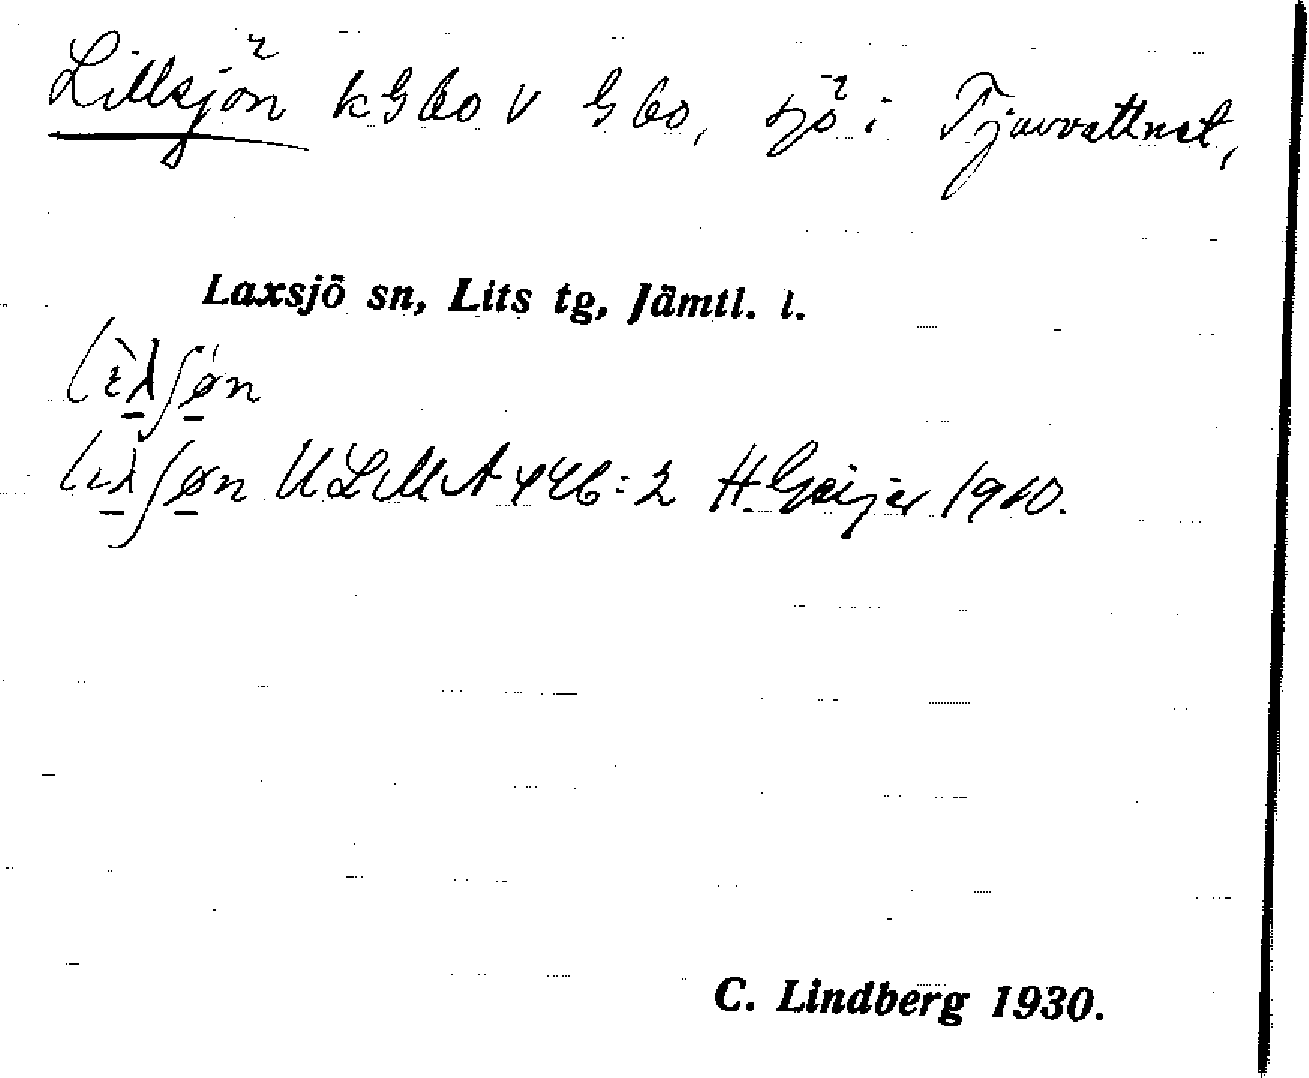 Lillsjön kGbo v Gbo, sjö i Tjouvattnet,
Laxsjö sn, Lits tg, Jämtl. l.
ULMA 446:2 H Geijer 1910.
C. Lindberg 1930.